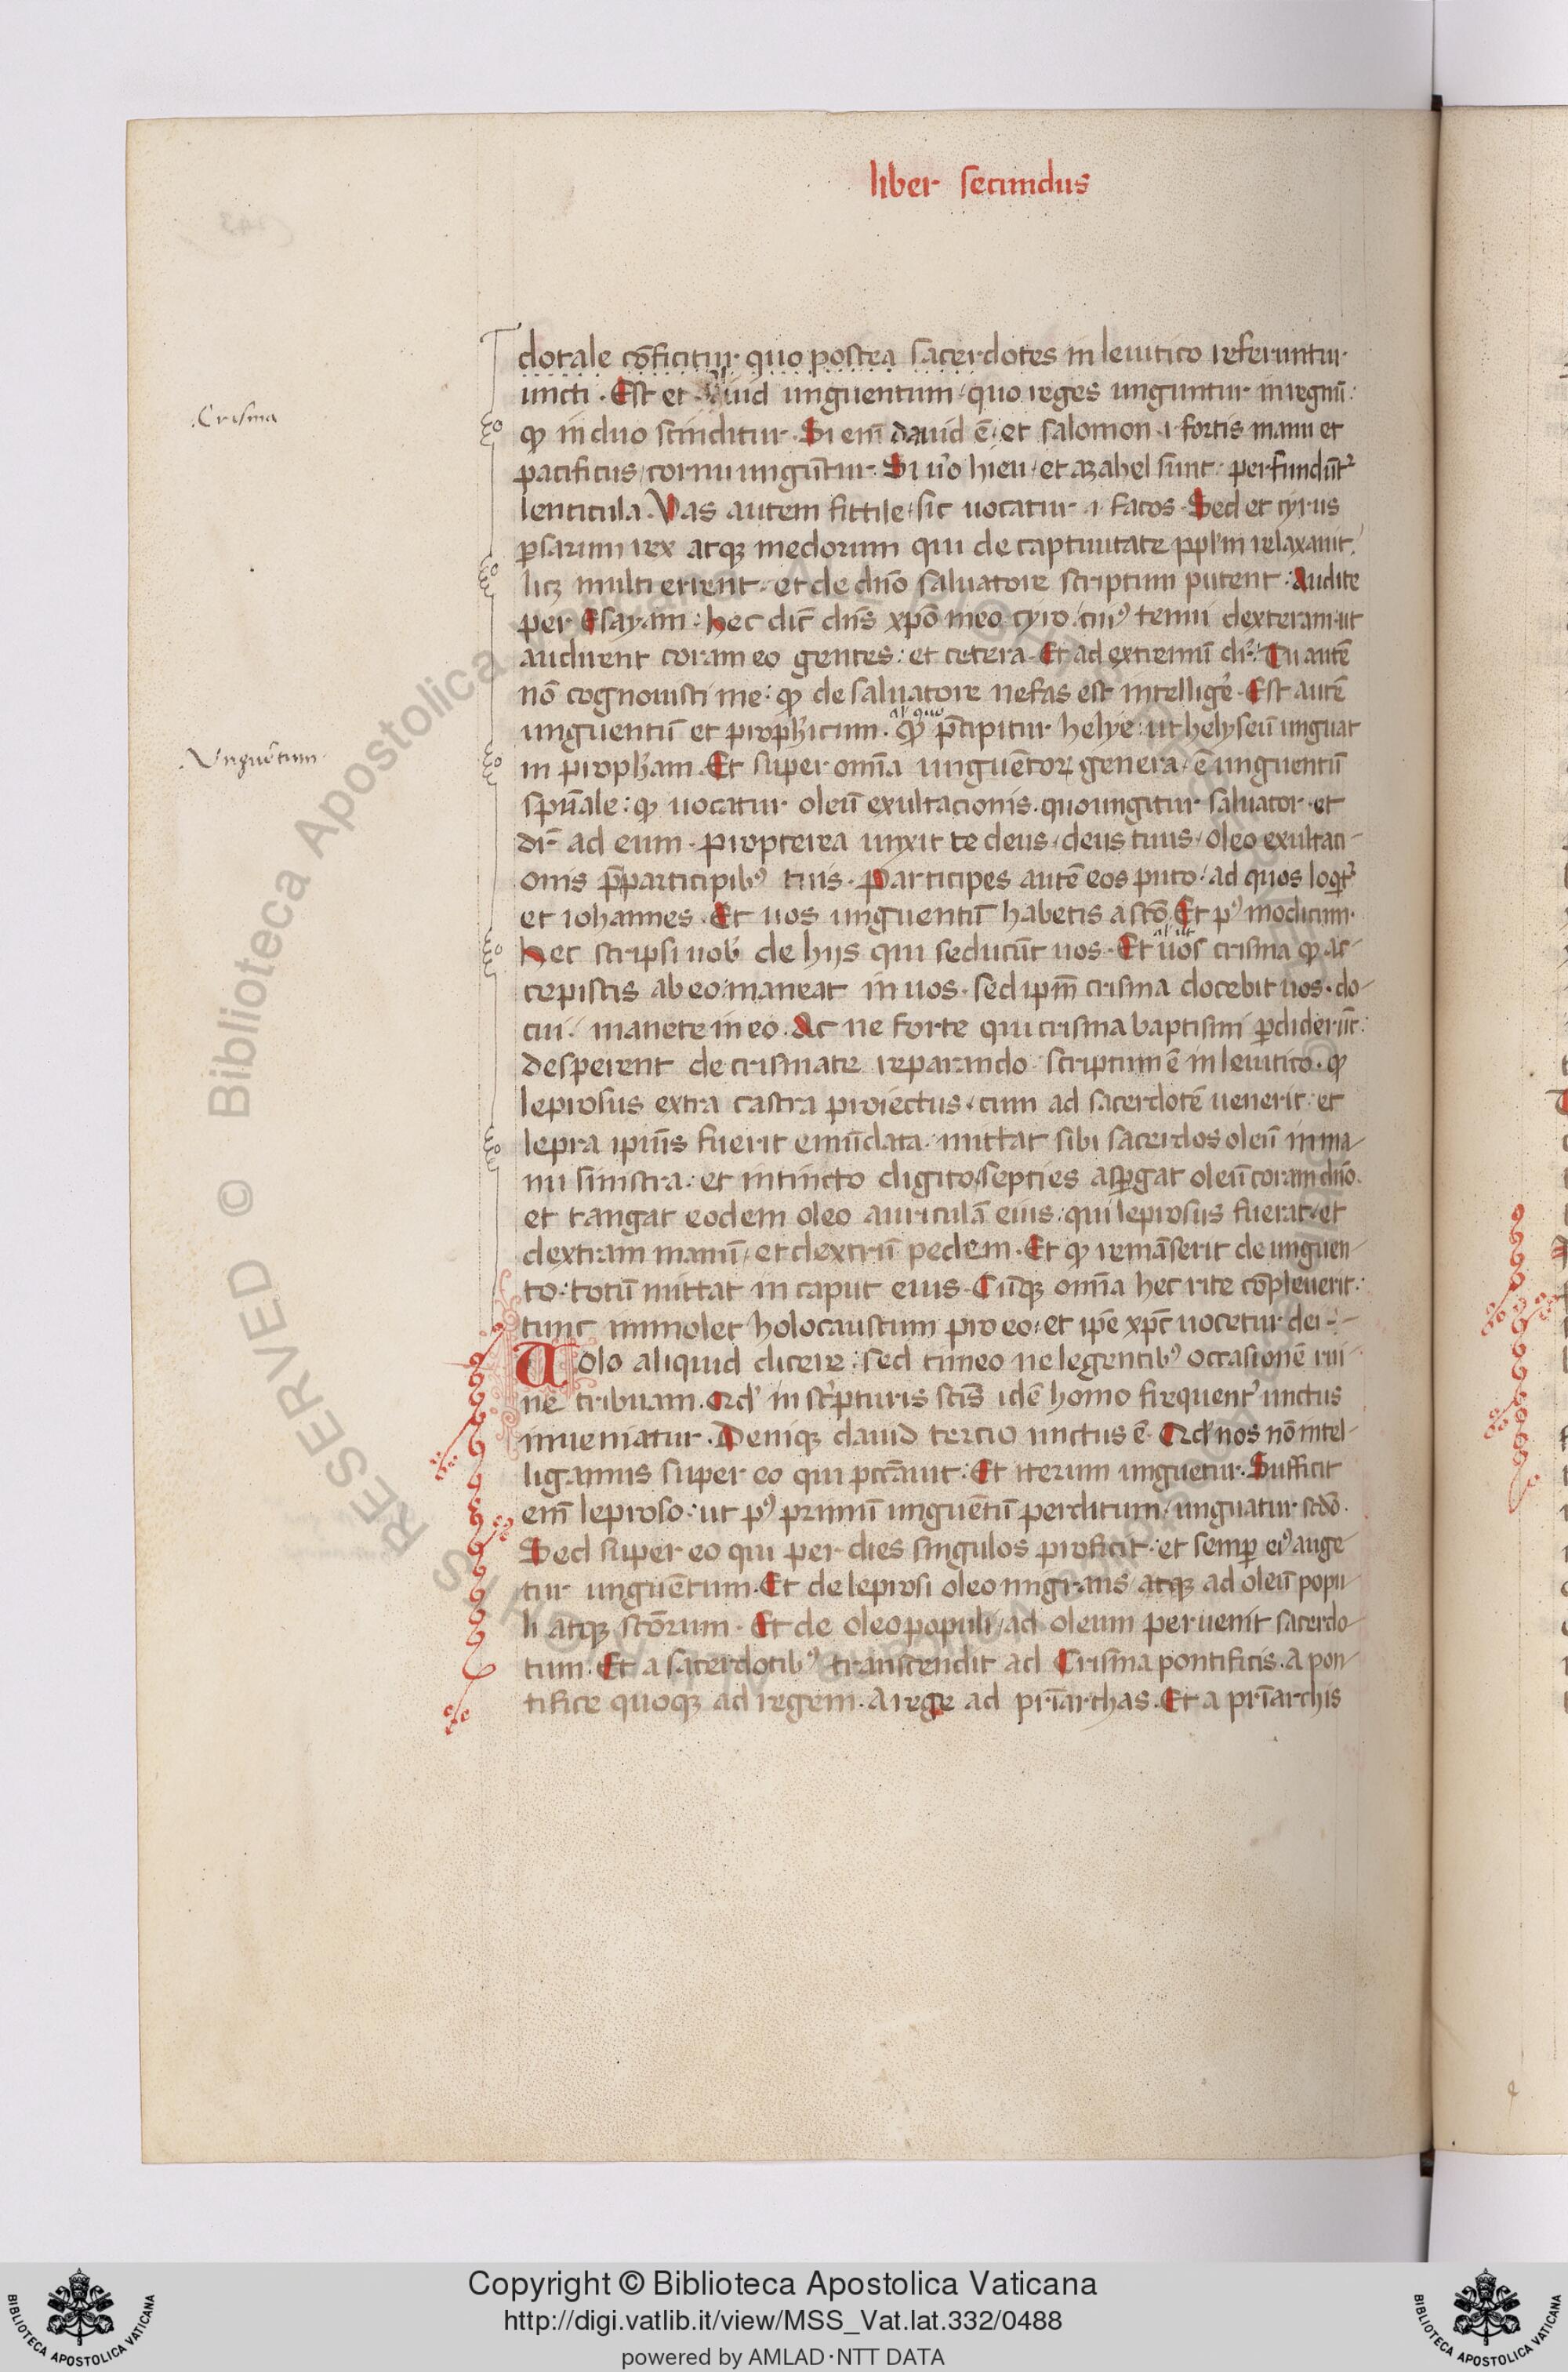 liber secundus
dotale cōficitur quo postea sacerdotes in leuitico referuntur
uncti . Est et aliud unguentum quo reges unguntur in regnū :
qđ in duo scinditur . Si eni dauid ē et salomon .i. fortis manu et
pacificus / cornu ungūtur . Si u̓o hieu / et azahel sunt perfundūt᷑
lenticula . Vas autem fictile sic uocatur .i. facos . Sed et cyrus
ꝑsarum rex atqꝫ medorum qui de captiuitate ppl̓m relaxauit .
licꝫ multi errent . et de dn̄o saluatore scriptum putent : Audite
per Esayam : hec dic̄ dn̄s xp̄o meo cyro . cui⁹ tenui dexteram ut
audirent coram eo gentes : et cetera . Et ad extremū dr̄ : Tu autē
nō cognouisti me : qđ de saluatore nefas est intellige̓ . Est autē
al̓ quo
unguentū et proph̓icum . qđ p̄cipitur helye : ut helyseū unguat
in proph̓am . Et super om̄ia unguētoꝝ genera / ē unguentū
spūale : qđ uocatur oleū exultacionis . quo ungitur saluator . et
dr̄ ad eum . propterea unxit te deus / deus tuus / oleo exultaci-
onis p̄participib⁹ tuis . Participes autē eos puto / ad quos loq̓t᷑
et iohannes . Et uos unguentū habetis a sc̄o . Et p⁹ modicum .
al̓ ut
hec scripsi uob̓ de hijs qui seducūt uos . Et uos crisma qđ ac-
cepistis ab eo / maneat in uos . sed ipm̄ crisma docebit uos . do-
cui / manete in eo . Ac ne forte qui crisma baptismi ꝑdiderūt :
desperent de crismate reparando scriptum ē in leuitico . qđ
leprosus extra castra proiectus . cum ad sacerdotē uenerit et
lepra ipiūs fuerit emūdata . mittat sibi sacerdos oleū in ma-
nu sinistra : et intincto digito / septies asꝑgat oleū coram dn̄o .
et tangat eodem oleo auriculā eius / qui leprosus fuerat / et
dextram manū / et dextrū pedem . Et qđ remāserit de unguen-
to : totū mittat in caput eius . Cūqꝫ om̄ia hec rite cōpleuerit :
tunc immolet holocaustum pro eo / et ip̄e xp̄c uocetur dei .
Uolo aliquid dicere : sed timeo ne legentib⁹ occasionē rui-
ne tribuam . Qd̓ in sc̓pturis sc̄is idē homo frequent̓ unctus
inueniatur . Deniqꝫ dauid tercio unctus ē . Qd̓ nos nō intel-
ligamus super eo qui pcc̄auit : Et iterum unguetur . Sufficit
em̄ leproso : ut p⁹ primū unguētū perditum / unguatur sc̄do .
Sed super eo qui per dies singulos proficit : et semꝑ ei⁹ auge-
tur unguētum . Et de leprosi oleo migrans / atqꝫ ad oleū popu-
li atqꝫ sc̄orum . Et de oleo populi / ad oleum peruenit sacerdo-
tum . Et a sacerdotib⁹ transcendit ad Crisma pontificis . A pon-
tifice quoqꝫ ad regem . A rege ad pr̄iarchas . Et a pr̄iarchis
Crisma
Unguētum
Copyright © Biblioteca Apostolica Vaticana
http://digi.vatlib.it/view/MSS_Vat.lat.332/0488
powered by AMLAD·NTT DATA
BIBLIOTECA APOSTOLICA VATICANA
BIBLIOTECA APOSTOLICA VATICANA